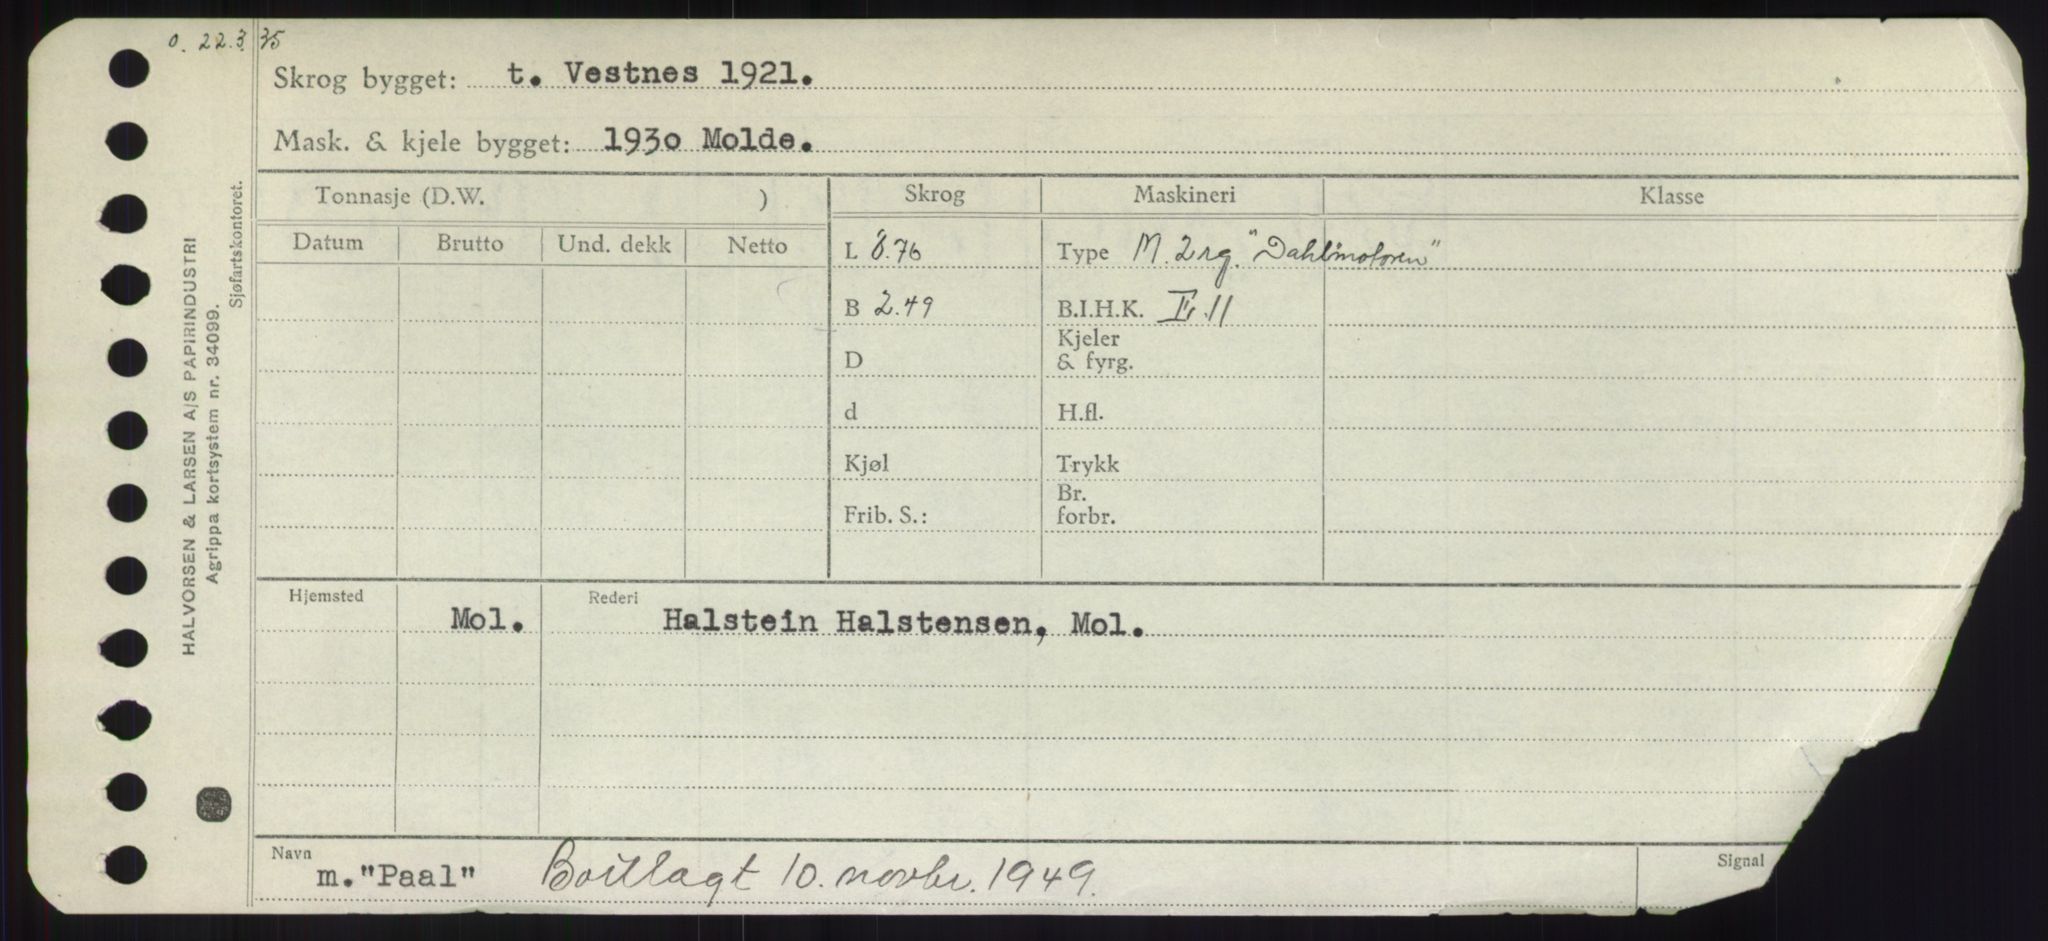 o. 22.3.35
Skrog bygget: t. Vestnes 1921.
Mask. & kjele bygget: 1930 Molde.
Tonnasje (D.W. ) Skrog Maskineri Klasse
Datum Brutto Und. dekk Netto
L 8.76 Type M. 2 rg. "Dahlmotoren"
B 2.49 B.I.H.K. II, 11
D Kjeler
& fyrg.
d H.fl.
Kjøl Trykk
Frib. S.: Br.
forbr.
Hjemsted Mol. Rederi Halstein Halstensen, Mol.
Navn m. "Paal" Bortlagt 10. novbr. 1949. Signal
HALVORSEN & LARSEN A/S PAPIRINDUSTRI
Agrippa kortsystem nr. 34099.
Sjøfartskontoret.